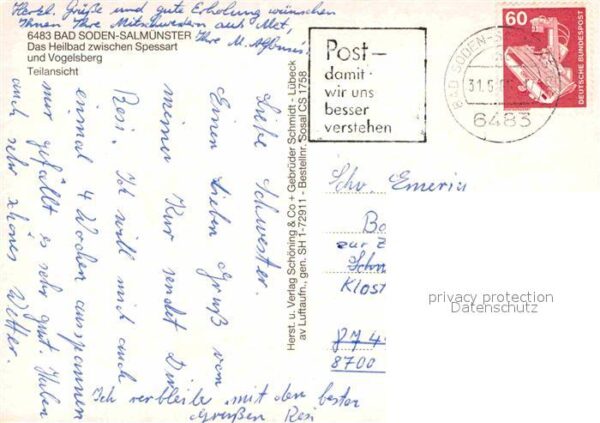 Herzl. Grüße und gute Erholung wünschen
Ihnen Ihre Mitschwestern aus Met,
Ihre M. Alfonsis
6483 BAD SODEN-SALMÜNSTER
Das Heilbad zwischen Spessart
und Vogelsberg
Teilansicht
Liebe Schwester.
Einen lieben Gruß von
meiner Kur sendet Dir
Resi. Ich will mich auch
einmal 4 Wochen ausspannen
mir gefällt es sehr gut. Haben
auch sehr schönes Wetter.
Ich verbleibe mit den besten
Grüßen Resi
Herst. u. Verlag Schöning & Co + Gebrüder Schmidt - Lübeck
av Luftaufn., gen. SH 1-72911 - Bestellnr. Sosal CS 1758
Post-
damit
wir uns
besser
verstehen
BAD SODEN-S
31.5.
6483
60
DEUTSCHE BUNDESPOST
Schw. Emeria
Ba
zur Z
Schw
Klost
8700
privacy protection
Datenschutz